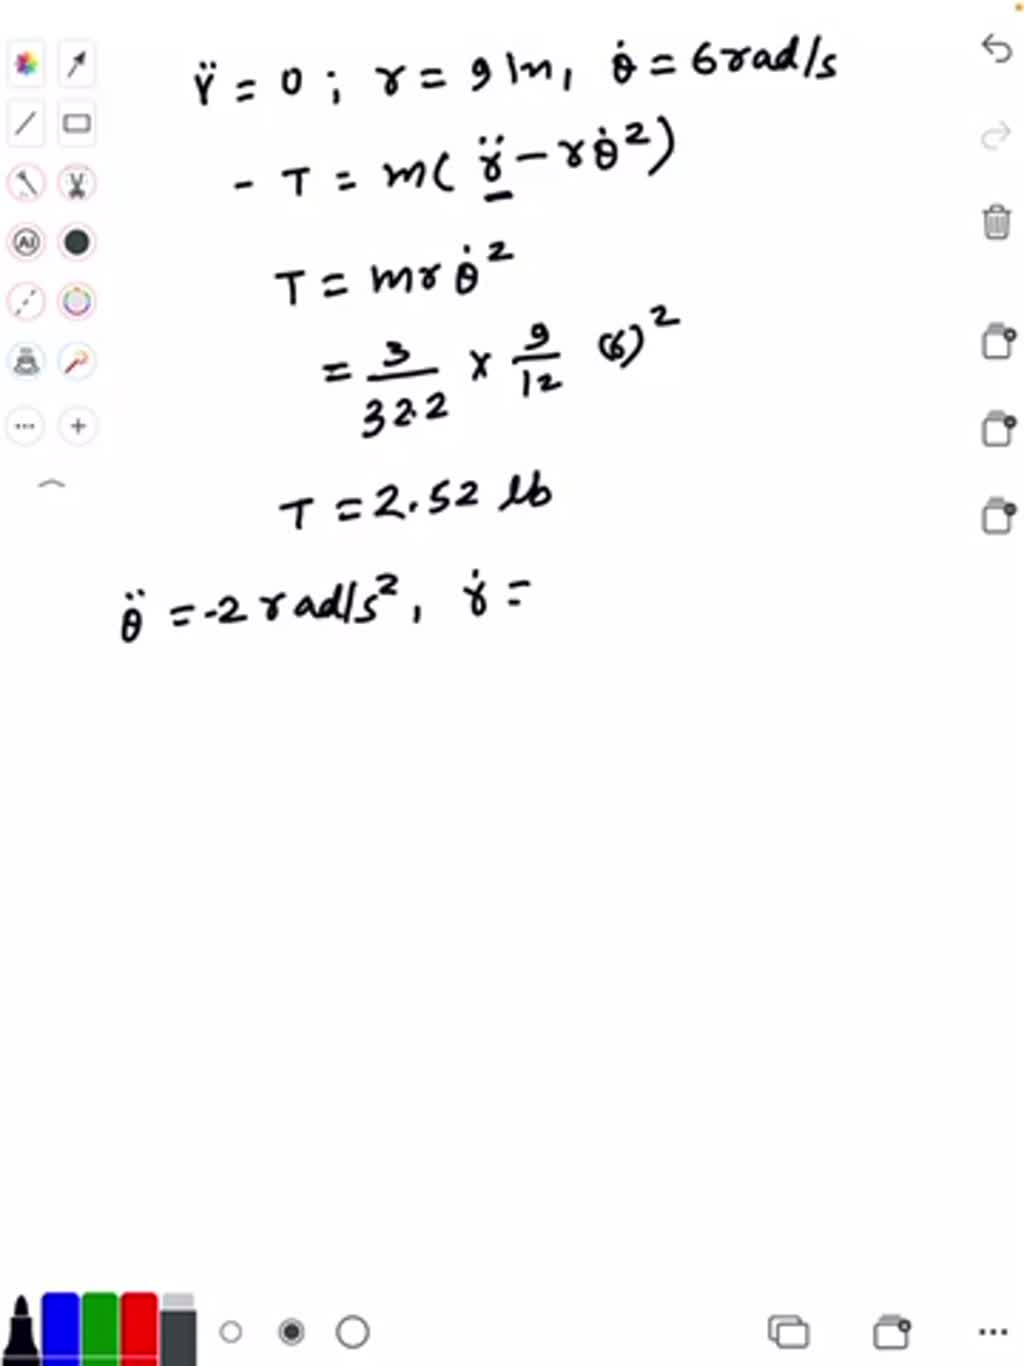 r̈ = 0 ; r = 9 in, θ̇ = 6 rad/s
- T = m( r̈ - rθ̇²)
T = mrθ̇²
= 3/32.2 × 9/12 (6)²
T = 2.52 lb
θ̈ = -2 rad/s², ṙ =
AI